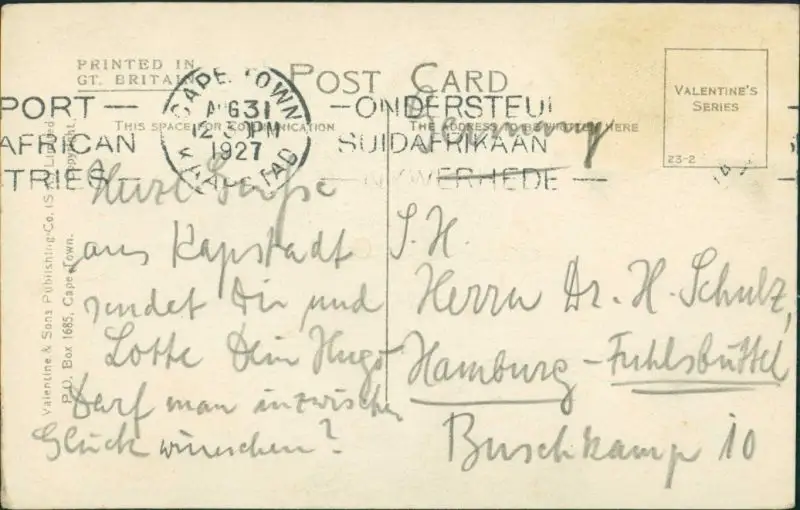 PRINTED IN
GT. BRITAIN
POST CARD
VALENTINE'S
SERIES
23-2
CAPE TOWN
AUG 31
12 PM
1927
KAAPSTAD
PORT — — ONDERSTEUN
AFRICAN SUIDAFRIKAAN
TRIES — — NYWERHEDE —
THIS SPACE FOR COMMUNICATION
THE ADDRESS TO BE WRITTEN HERE
Germany
Valentine & Sons Publishing Co. (S.A.) Limited.
P.O. Box 1685, Cape Town. Copyright.
Herzl. Grüsse
aus Kapstadt
sendet Dir und
Lotte Dein Hugo
Darf man inzwischen
Glück wünschen?
S. H.
Herrn Dr. H. Schulz,
Hamburg – Fuhlsbüttel
Buschkamp 10